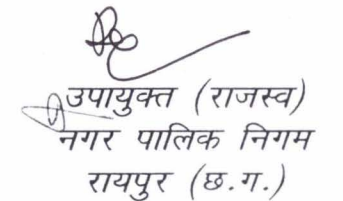 उपायुक्त (राजस्व)
नगर पालिक निगम
रायपुर (छ.ग.)